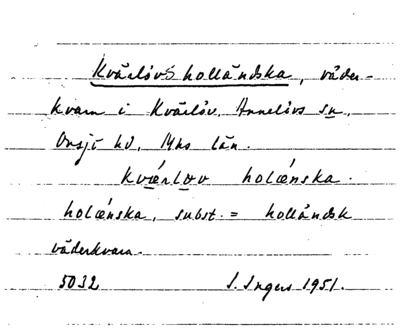 Kvärlövs holländska, väder-
kvarn i Kvärlöv, Annelövs sn.,
Onsjö hd, Mhs län.
kværløv holǽnska.
holǽnska, subst. = holländsk
väderkvarn.
5032 I. Ingers 1951.